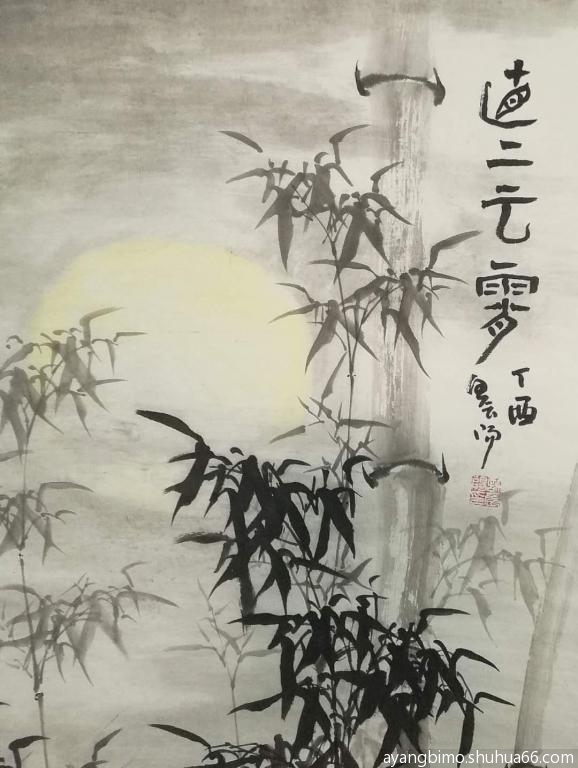 直上云霄
丁酉
ayangbimo.shuhua66.com